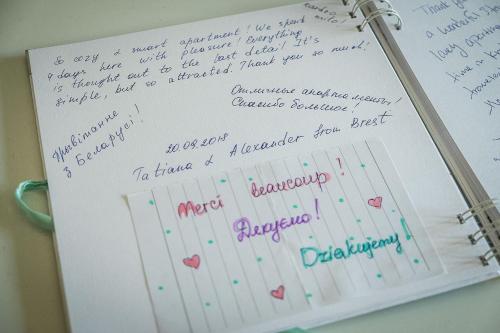 So cozy & smart apartment! We spent
4 days here with pleasure! Everything
is thought out to the last detail. It's
simple, but so attracted. Thank you so much!
Отличные апартаменты!
Спасибо большое!
Прывітанне
з Беларусі!
20.09.2018
Tatiana & Alexander from Brest
Merci beaucoup!
Дякуємо!
Dziękujemy!
Thank you